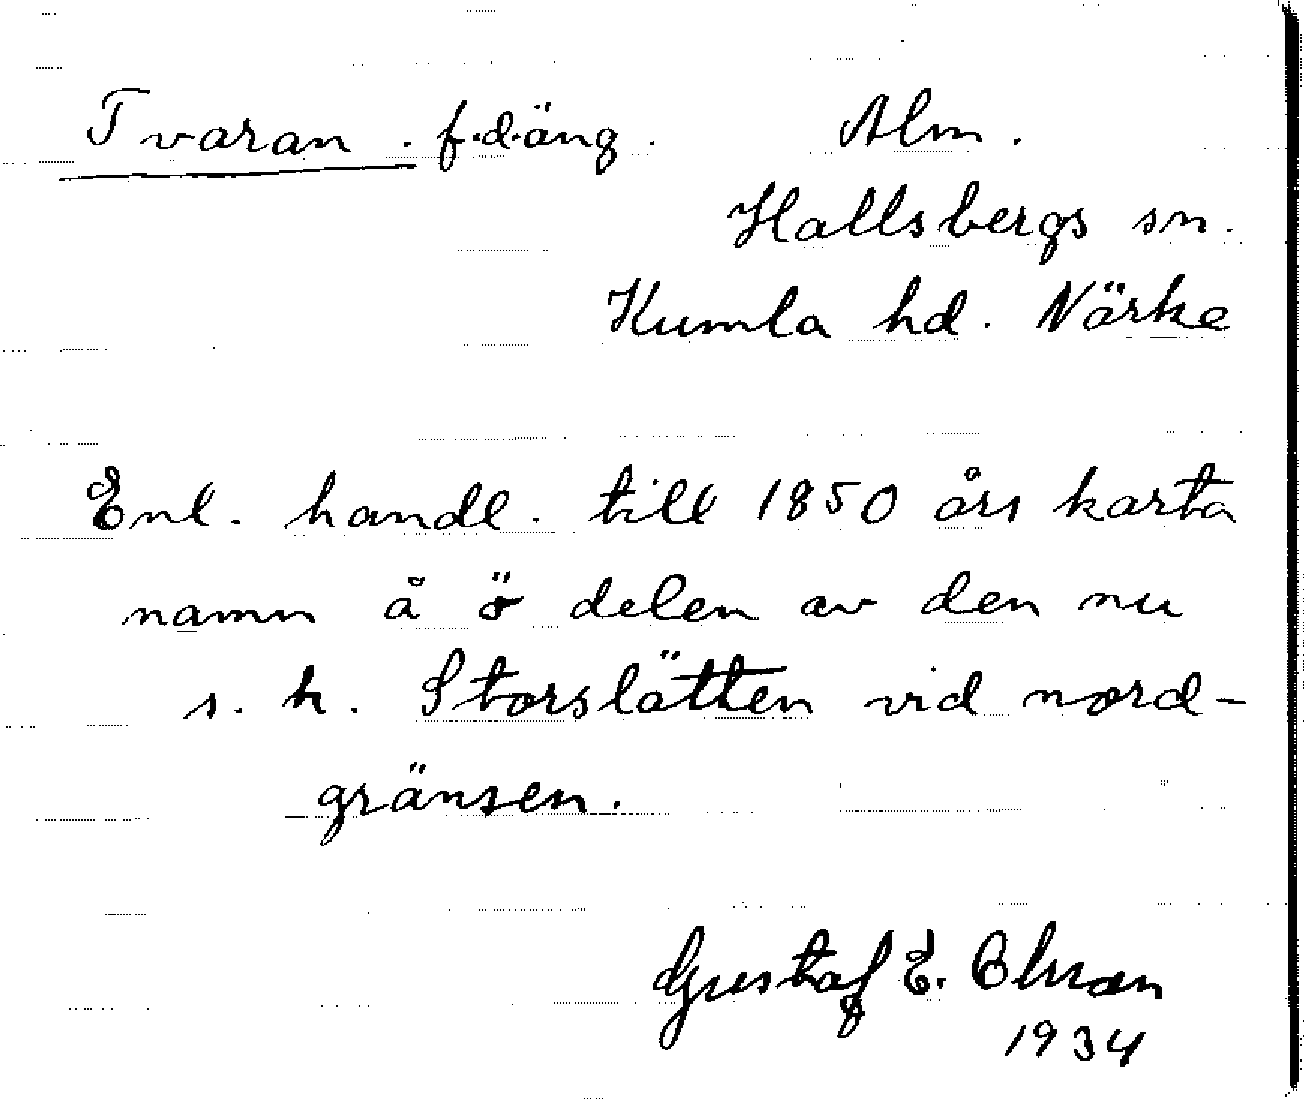 Tvaran. f.d.äng. Alm.
Hallsbergs sn.
Kumla hd. Närke
Enl. handl. till 1850 års karta
namn å ö delen av den nu
s. k. Storslätten vid nord-
gränsen.
Gustaf E.
1934